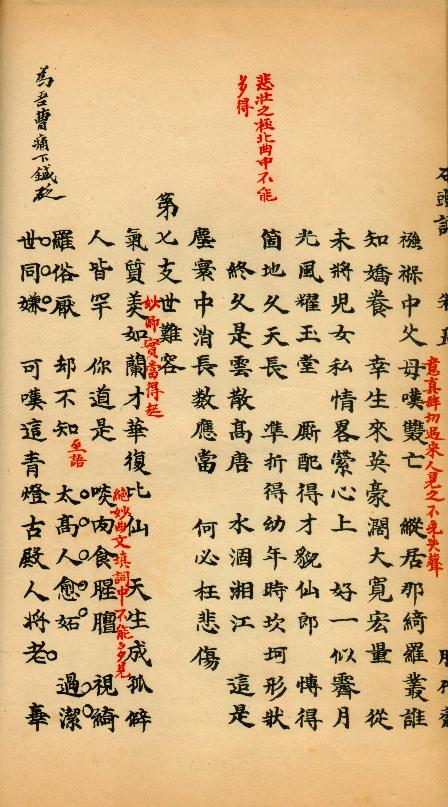 襁褓中父母嘆雙亡 縱居那綺羅叢誰
意真辞切過來人見之不免失聲
知嬌養 幸生來英豪濶大寬宏量 從
未將兒女私情畧縈心上 好一似霽月
光風耀玉堂 厮配得才貌仙郎 博得
箇地久天長 準折得幼年時坎坷形狀
悲壯之極北曲中不能
多得
終久是雲散高唐 水涸湘江 這是
塵寰中消長数應當 何必枉悲傷
第七支世難容
妙卿實當得起
氣質美如蘭才華復比仙 天生成孤僻
絕妙曲文填詞中不能多見
人皆罕 你道是 啖肉食腥膻 視綺
羅俗厭 却不知 太高人愈妬 過潔
至語
世同嫌 可嘆這青燈古殿人將老 辜
為吾曹痛下鍼砭